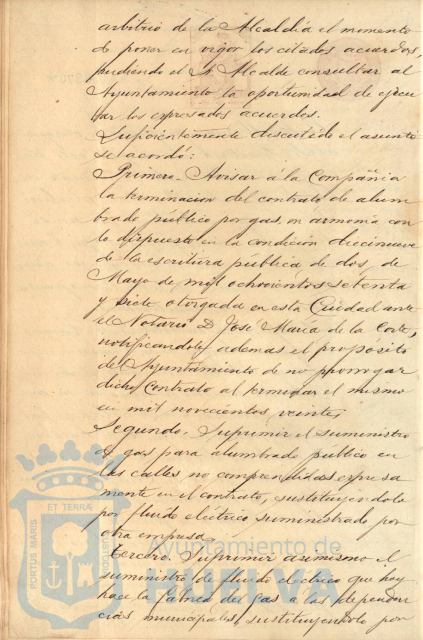 arbitrio de la Alcaldía el momento
de poner en vigor los citados acuerdos,
pudiendo el Sr Alcalde consultar al
Ayuntamiento la oportunidad de ejecu
tar los expresados acuerdos.
Suficientemente discutido el asunto
se acordó:
Primero. Avisar á la Compañia
la terminacion del contrato de alum
brado público por gas, en armonia con
lo dispuesto en la condición diecinueve
de la escritura pública de dos de
Mayo de mil ochocientos setenta
y siete otorgada en esta Ciudad ante
el Notario D. José María de la Corte,
notificandole, ademas el propósito
del Ayuntamiento de no prorrogar
dicho contrato al terminar el mismo
en mil novecientos veinte,
Segundo. Suprimir el suministro
de gas para alumbrado público en
las calles no comprendidas expresa
mente en el contrato, sustituyendole
por fluido eléctrico suministrado por
otra empresa.
Tercero. Suprimir asimismo el
suministro de fluido eléctrico que hoy
hace la fabrica del gas á las dependen
cias municipales, sustituyendolo por
PORTUS MARIS ET TERRÆ CUSTODIA
Ayuntamiento de